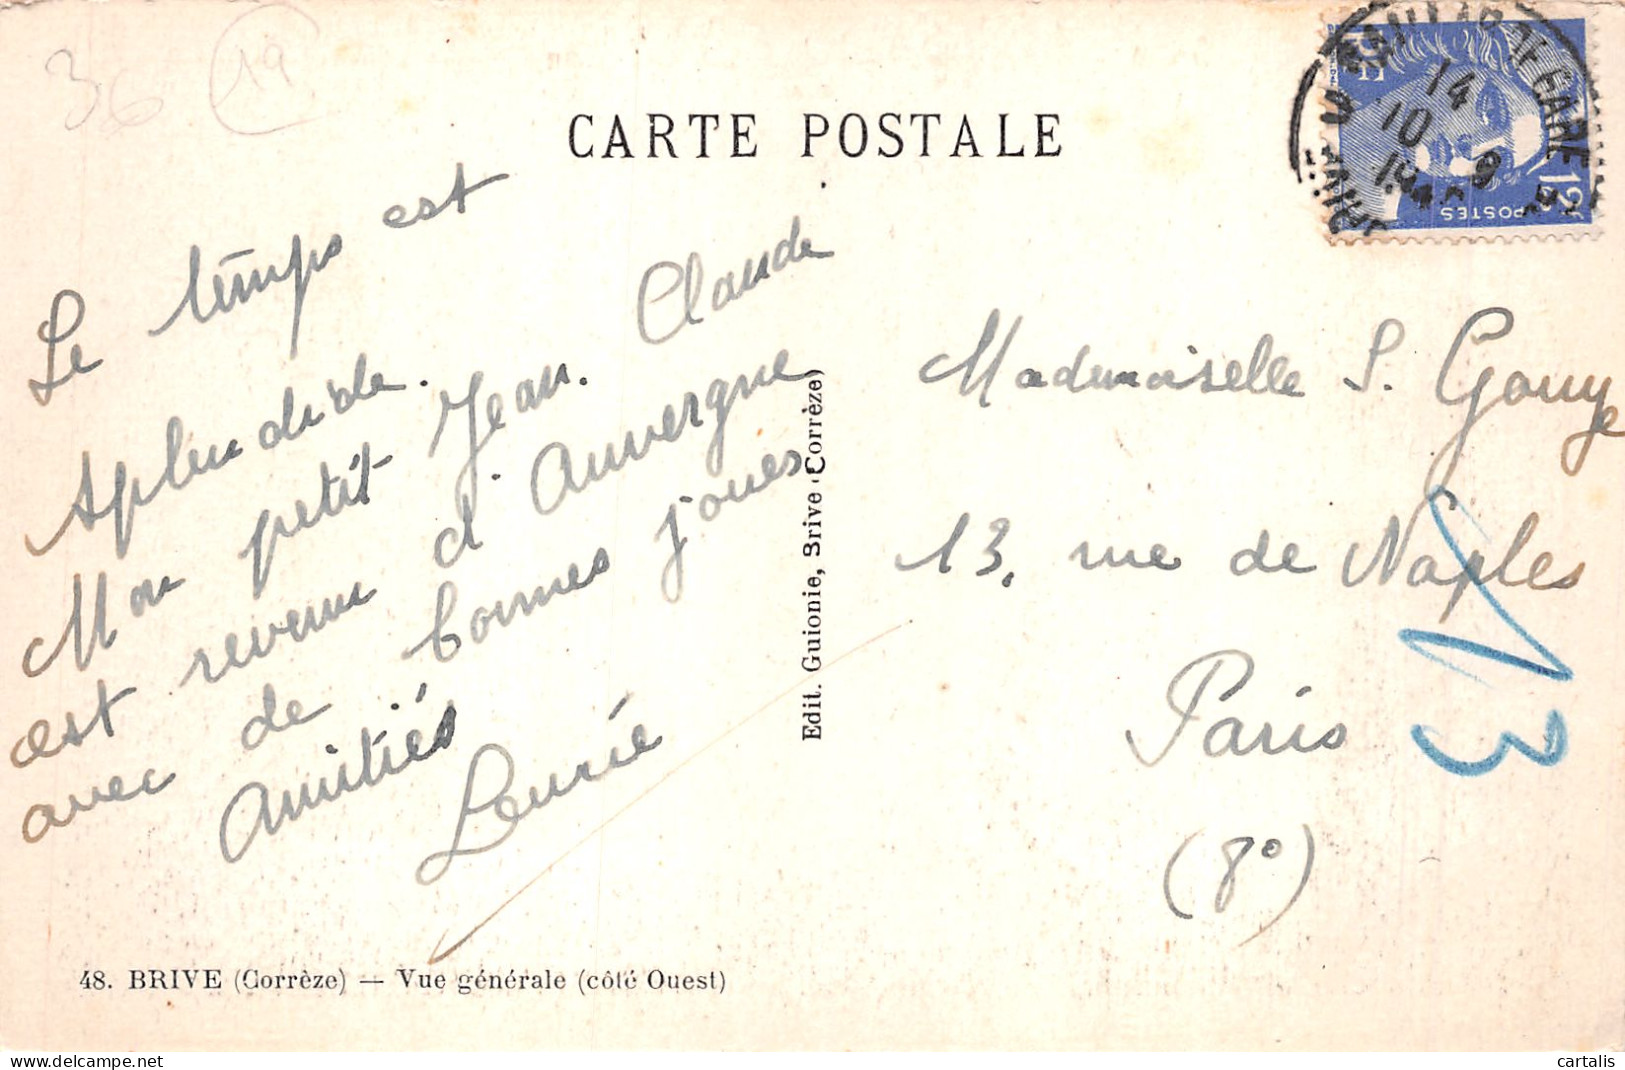 36
19
CARTE POSTALE
Le temps est
splendide.
Mon petit Jean. Claude
est revenu d'Auvergne
avec de bonnes joues
Amitiés
Edit. Guionie, Brive (Corrèze)
POSTES
12F
GARE
14
10
Mademoiselle S. Gouye
13, rue de Naples
Paris
(8°)
13
48. BRIVE (Corrèze) — Vue générale (côté Ouest)
cartalis